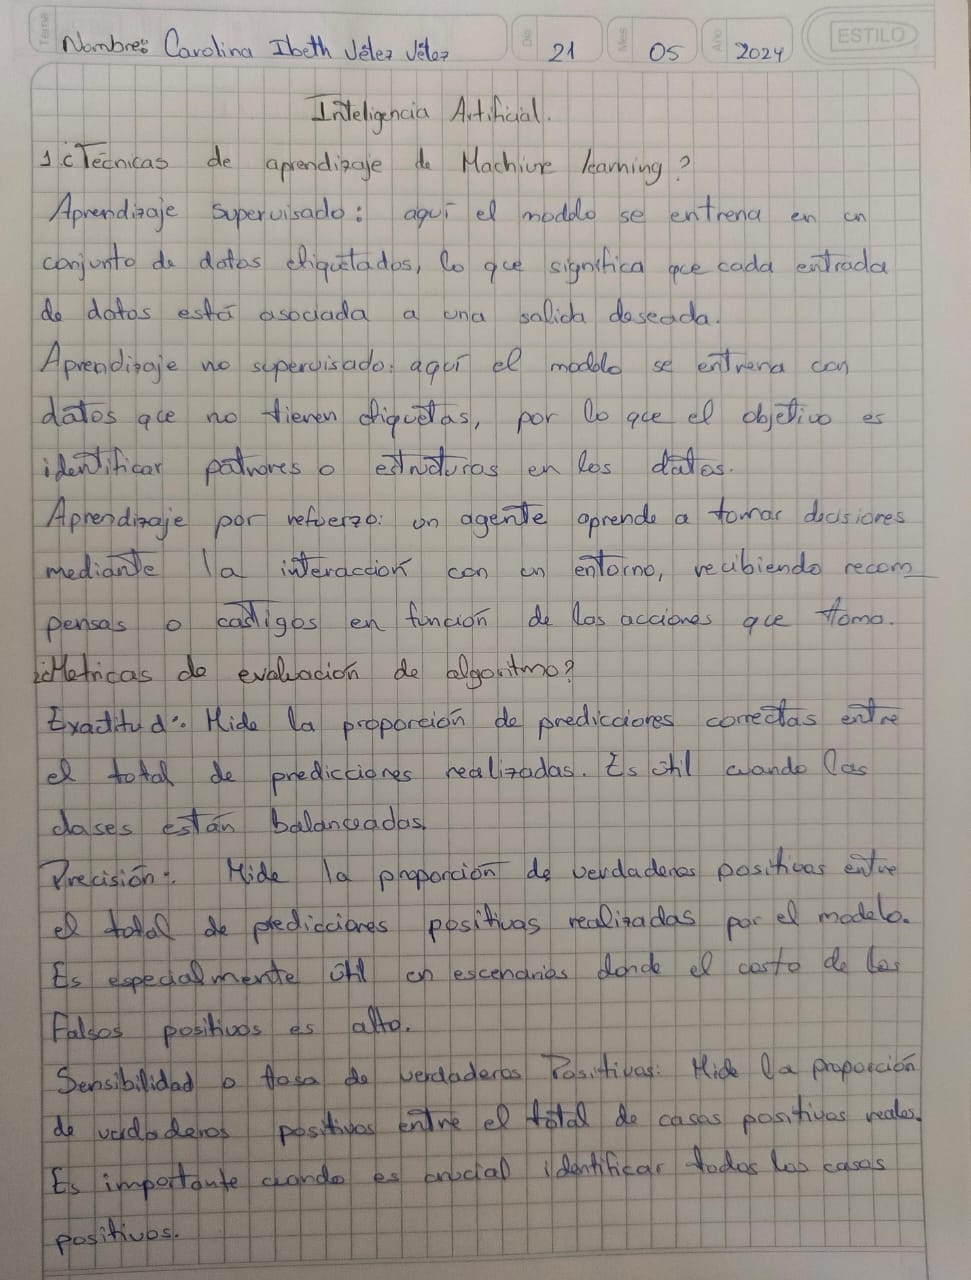 Tema Nombre: Carolina Ibeth Vélez Vélez Día 21 Mes 05 Año 2024 ESTILO
Inteligencia Artificial.
1 ¿Tecnicas de aprendizaje de Machine learning?
Aprendizaje supervisado: aquí el modelo se entrena en un
conjunto de datos etiquetados, lo que significa que cada entrada
de datos está asociada a una salida deseada.
Aprendizaje no supervisado: aquí el modelo se entrena con
datos que no tienen etiquetas, por lo que el objetivo es
identificar patrones o estructuras en los datos.
Aprendizaje por refuerzo: un agente aprende a tomar decisiones
mediante la interacción con un entorno, recibiendo recom_
pensas o castigos en función de las acciones que toma.
2¿Metricas de evaluación de algoritmo?
Exactitud: Mide la proporción de predicciones correctas entre
el total de predicciones realizadas. Es útil cuando las
clases están balanceadas.
Precisión: Mide la proporción de verdaderos positivos entre
el total de predicciones positivas realizadas por el modelo.
Es especialmente útil en escenarios donde el costo de los
Falsos positivos es alto.
Sensibilidad o tasa de verdaderos Positivos: Mide la proporción
de verdaderos positivos entre el total de casos positivos reales.
Es importante cuando es crucial identificar todos los casos
positivos.